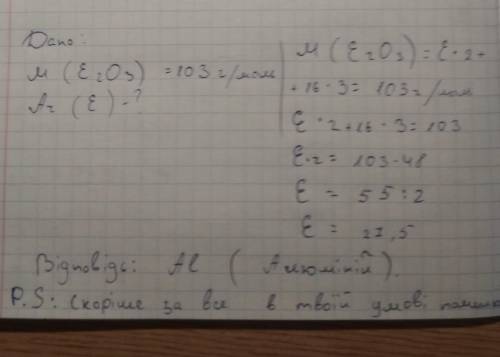 Дано:
M (E₂O₃) = 103 г/моль
Ar (E) - ?
M (E₂O₃) = E · 2 +
+ 16 · 3 = 103 г/моль
E · 2 + 16 · 3 = 103
E · 2 = 103 - 48
E = 55 : 2
E = 27,5
Відповідь: Al (Алюміній).
P.S: Скоріше за все в твоїй умові